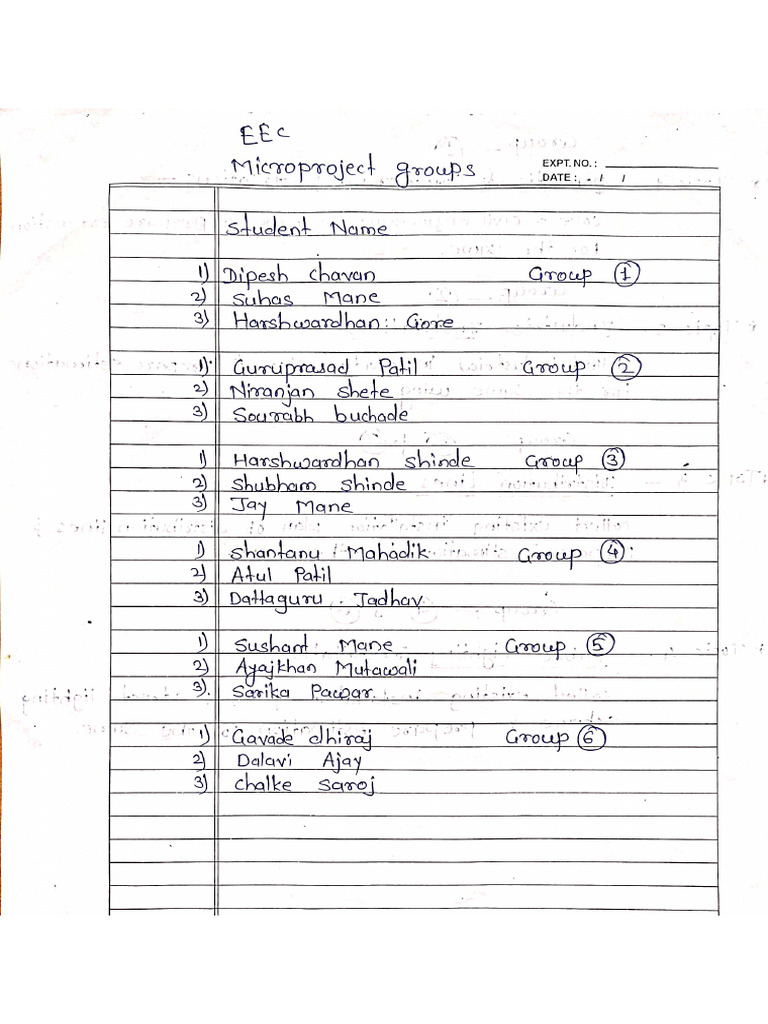 EEC
Microproject groups
EXPT. NO. :
DATE : / /
Student Name
1) Dipesh chavan Group 1
2) Suhas Mane
3) Harshwardhan Gore
1) Guruprasad Patil Group 2
2) Niranjan shete
3) Sourabh buchade
1) Harshwardhan shinde Group 3
2) Shubham shinde
3) Jay Mane
1) Shantanu Mahadik Group 4
2) Atul Patil
3) Dattaguru Jadhav
1) Sushant Mane Group 5
2) Ayajkhan Mutawali
3). Sarika Pawar
1) Gavade dhiraj Group 6
2) Dalavi Ajay
3) Chalke Saroj